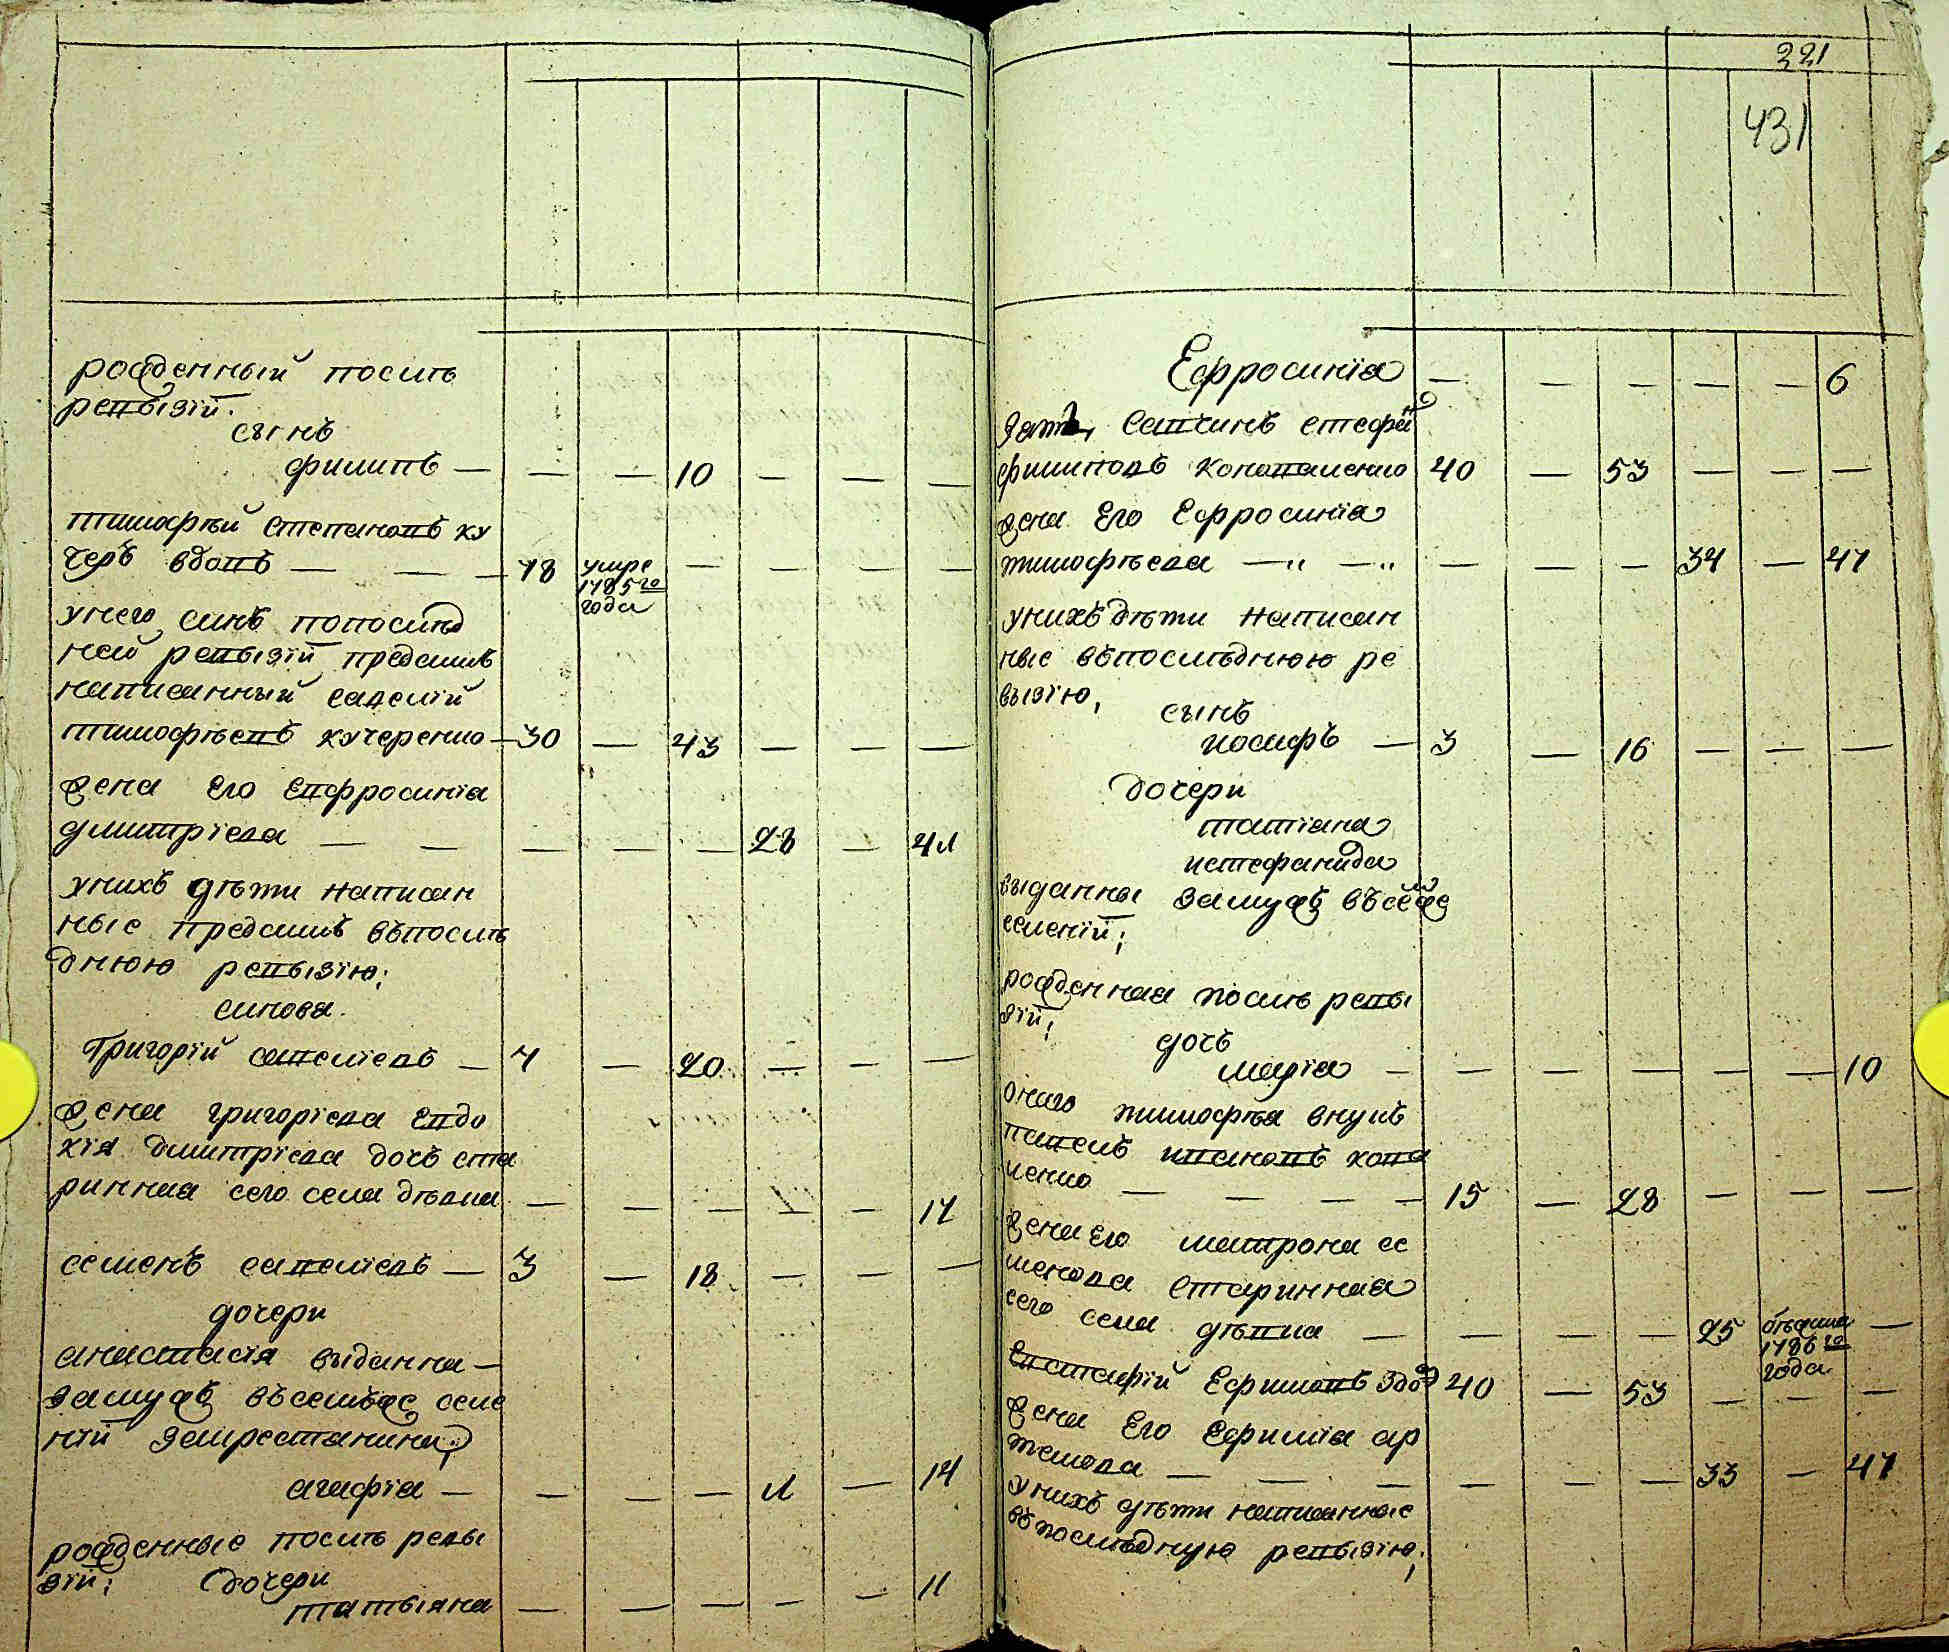 рожденный после
ревызіи.
сынъ
филипъ — — — 10 — — —
тимофѣй степановъ ку
черъ вдовъ — — — 78 умре 1785го года — — — —
унего синъ попослѣд
ней ревызіи предсимъ
написанный савелій
тимофѣевъ кучеренко — 30 — 43 — — —
жена его Евфросинія
дмитріева — — — — — 28 — 41
унихъ дѣти написан
ные предсимъ въпослѣ
днюю ревызію;
синова.
Григорій савеліевъ — 7 — 20 — — —
жена григоріева Евдо
кія дмитріева дочъ ста
ринная сего села дѣвка — — — — — 17
семенъ савеліевъ — 3 — 18 — — —
дочери
анастасія выданна —
замужъ въсемъже селе
ніи
агафіа — — — — 1 — 14
рожденные послѣ ревы
зіи; дочери
татыяна — — — — — 11
221
431
Ефросиніа — — — — — 6
зять савинъ стефа
филиповъ коноваленко 40 — 53 — — —
жена Его Ефросиніа
тимофѣева — — — — — 34 — 47
унихъ дѣти написан
ные въпослѣднюю ре
вызію,
сынъ
иосифъ — 3 — 16 — — —
дочери
татіана
истефанида
выданны замужъ въсемже
селеніи;
рожденная послѣ ревы
зіи;
дочъ
маріа — — — — — — 10
онаго тимофѣа внукъ
павелъ ивановъ кова
ленко — — — — 15 — 28 — — —
жена Его матрона се
менова старинная
сего села дѣвка — — — — 25 бѣжала 1786го года —
Евстафій Ефимовъ 40 — 53 — — —
жена Его Ефиміа ар
темова — — — — — — 33 — 47
унихъ дѣти написанные
въпослѣдную ревызію;